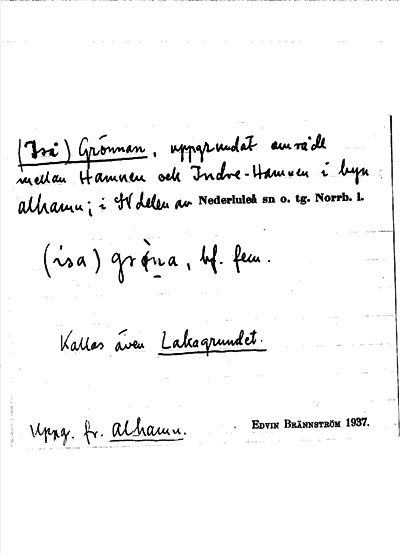 (Iså) Grönnan, uppgrundat område
mellan Hamnen och Indre-Hamnen i byn
alhamn; i N delen av Nederluleå sn o. tg. Norrb. l.
(isa) grø̀na, bf. fem.
Kallas även Lakagrundet.
Uppg. fr. alhamn.
EDVIN BRÄNNSTRÖM 1937.